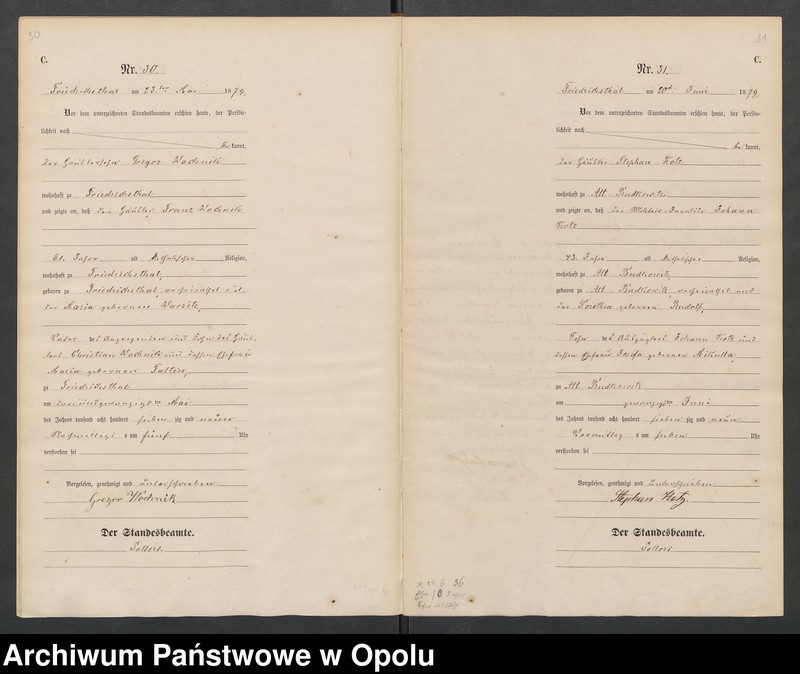 30
C.
Nr. 30.
Friedrichsthal am 23ten Mai 1879.
Vor dem unterzeichneten Standesbeamten erschien heute, der Persön-
lichkeit nach
be kannt,
der Häuslersohn Gregor Wochnik
wohnhaft zu Friedrichsthal
und zeigte an, daß der Häusler Franz Wochnik
61 Jahre alt katholischer Religion,
wohnhaft zu Friedrichsthal,
geboren zu Friedrichsthal, verheirathet mit
der Maria geborenen
Vater des Anzeigenden und Sohn des Häus-
lers Christian Wochnik und dessen Ehefrau
Maria geborenen
zu Friedrichsthal
am drei und zwanzigsten Mai
des Jahres tausend acht hundert sieben zig und neun
Nachmittags um fünf Uhr
verstorben sei
Vorgelesen, genehmigt und unterschrieben
Gregor Wochnik
Der Standesbeamte.
31
C.
Nr. 31.
Friedrichsthal am 20ten Juni 1879.
Vor dem unterzeichneten Standesbeamten erschien heute, der Persön-
lichkeit nach
be kannt,
der Häusler Stephan Kotz
wohnhaft zu Alt Budkowitz
und zeigte an, daß der Johann
Kotz
73 Jahre alt katholischer Religion,
wohnhaft zu Alt Budkowitz,
geboren zu Alt Budkowitz, verheirathet mit
der geborenen Rudolf,
Sohn des Auszüglers Johann Kotz und
dessen Ehefrau Josefa geborenen Mikulla,
zu Alt Budkowitz
am zwanzigsten Juni
des Jahres tausend acht hundert sieben zig und neun
Vormittag um sieben Uhr
verstorben sei
Vorgelesen, genehmigt und unterschrieben
Stephan Kotz.
Der Standesbeamte.
Archiwum Państwowe w Opolu